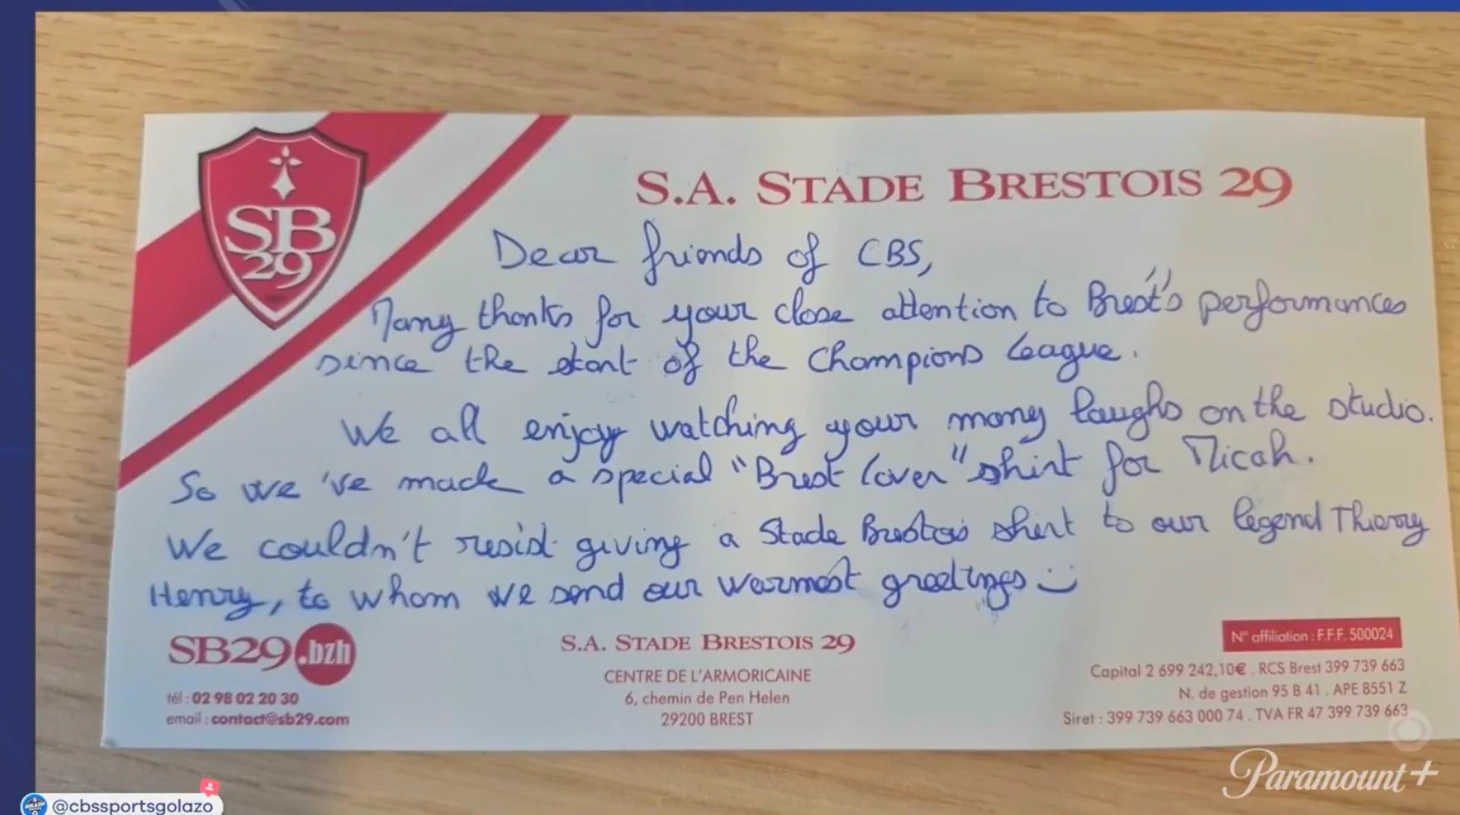 SB
29
S.A. STADE BRESTOIS 29
Dear friends of CBS,
Many thanks for your close attention to Brest's performances
since the start of the Champions League.
We all enjoy watching your many laughs on the studio.
So we've made a special "Brest lover" shirt for Micah.
We couldn't resist giving a Stade Brestois shirt to our legend Thierry
Henry, to whom we send our warmest greetings
SB29.bzh
tél : 02 98 02 20 30
email : contact@sb29.com
S.A. STADE BRESTOIS 29
CENTRE DE L'ARMORICAINE
6, chemin de Pen Helen
29200 BREST
N° affiliation : F.F.F. 500024
Capital 2 699 242,10€ . RCS Brest 399 739 663
N. de gestion 95 B 41 . APE 8551 Z
Siret : 399 739 663 000 74 . TVA FR 47 399 739 663
Paramount+
@cbssportsgolazo